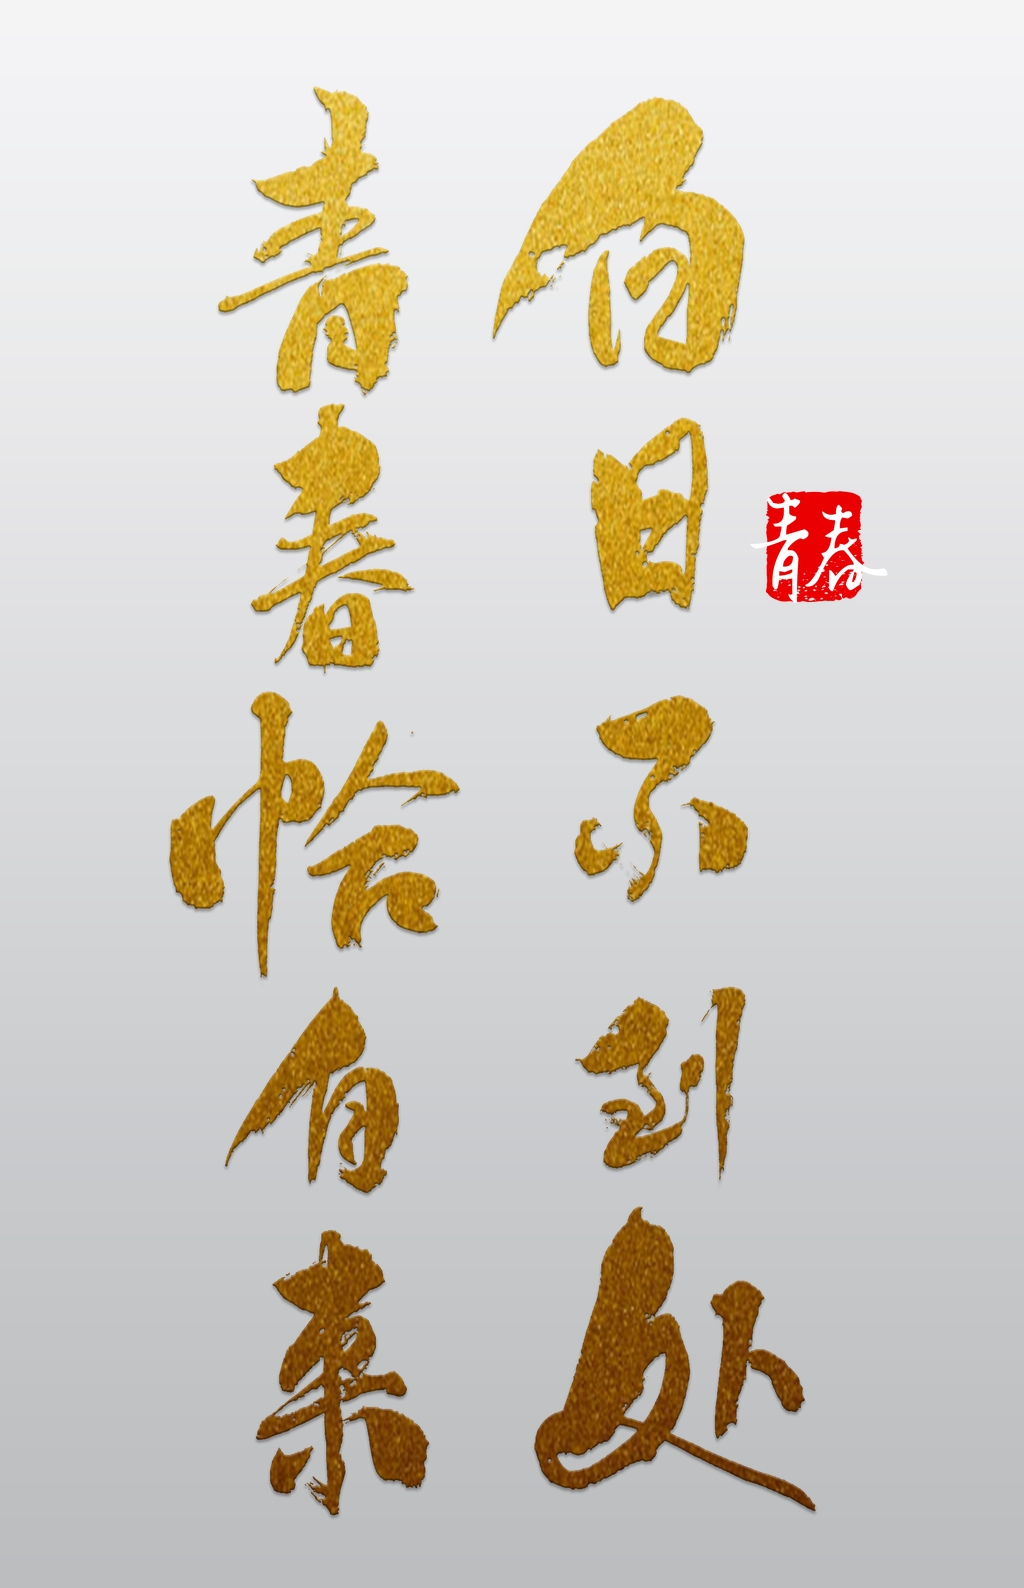 白日不到处
青春恰自来
青春